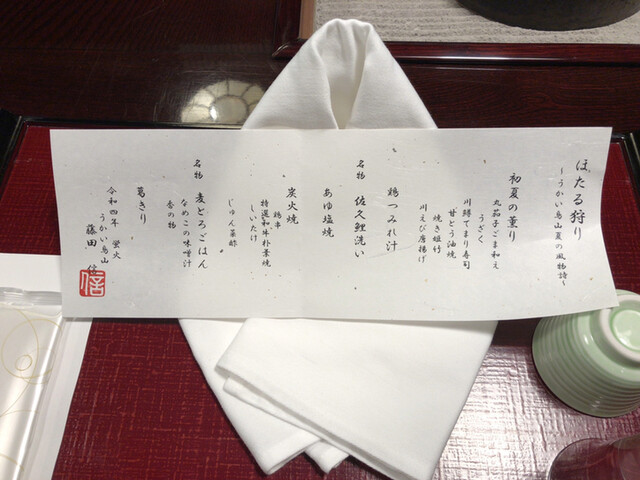 ほたる狩り
～うかい鳥山夏の風物詩～
初夏の薫り
丸茄子ごま和え
うざく
川鱒てまり寿司
甘とう油焼
焼き姫竹
川えび唐揚げ
鶏つみれ汁
名物 佐久鯉洗い
あゆ塩焼
炭火焼
鶏串
特選和牛朴葉焼
しいたけ
じゅん菜酢
名物 麦とろごはん
なめこの味噌汁
香の物
葛きり
令和四年 蛍火
うかい鳥山
藤田 信
信